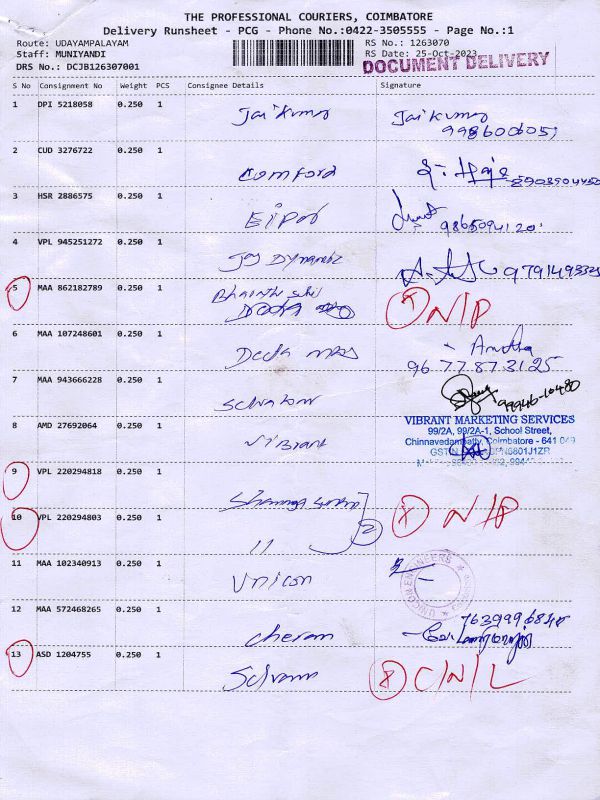 THE PROFESSIONAL COURIERS, COIMBATORE
Delivery Runsheet - PCG - Phone No.:0422-3505555 - Page No.:1
Route: UDAYAMPALAYAM RS No.: 1263070
Staff: MUNIYANDI RS Date: 25-Oct-2023
DRS No.: DCJB126307001 DOCUMENT DELIVERY
S No Consignment No Weight PCS Consignee Details Signature
1 DPI 5218058 0.250 1 Jai Kumar Jai Kumar
9986006051
2 CUD 3276722 0.250 1 Comford
8903904450
3 HSR 2886575 0.250 1
9865094120
4 VPL 945251272 0.250 1 Joy 9791493325
5 MAA 862182789 0.250 1 N/P
6 MAA 107248601 0.250 1 Deeta
9677873125
7 MAA 943666228 0.250 1 99946-10480
8 AMD 27692064 0.250 1 Vibrant VIBRANT MARKETING SERVICES
99/2A, 99/2A-1, School Street,
Chinnavedampatty, Coimbatore - 641 049
9 VPL 220294818 0.250 1
10 VPL 220294803 0.250 1 11 2 N/P
11 MAA 102340913 0.250 1 Unicon
12 MAA 572468265 0.250 1 Cheran
13 ASD 1204755 0.250 1 Selvam C/N/L